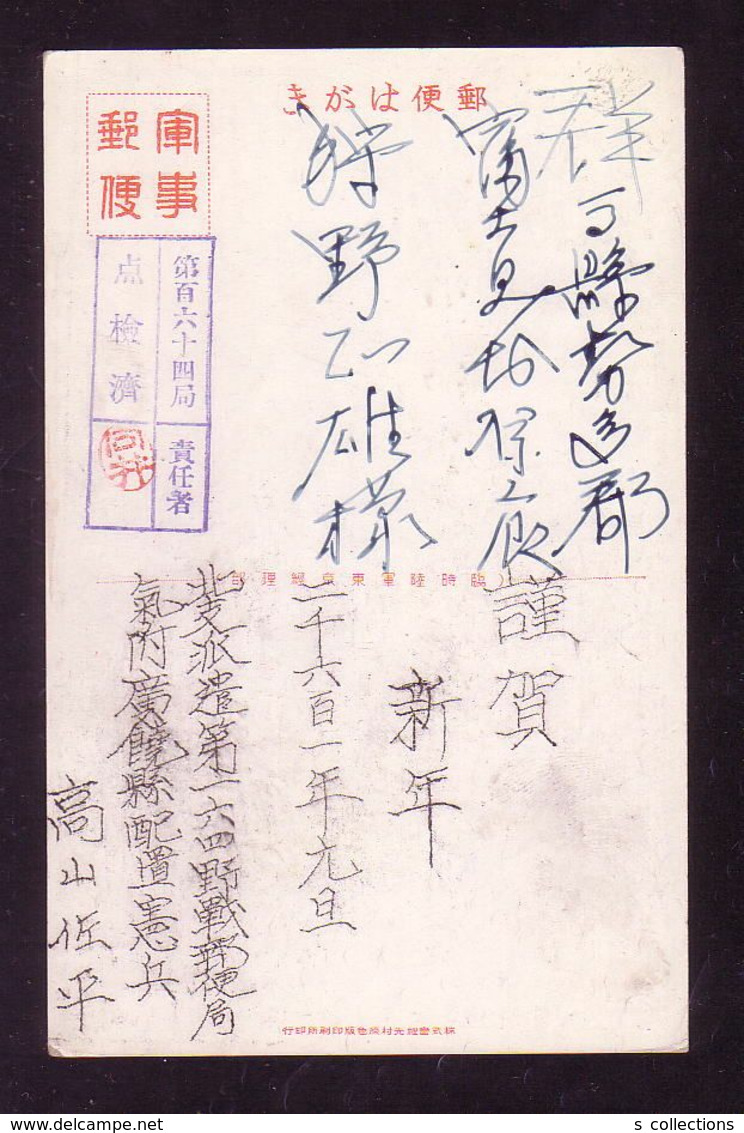 郵便はがき
軍事
郵便
第百六十四局 責任者
点檢濟
群馬縣勢多郡
富士見村原之
狩野正雄樣
臨時陸軍東京經理部
謹賀
新年
二千六百一年元旦
北支派遣第一六四野戰郵便局
氣附廣饒縣配置憲兵
高山佐平
印刷所印行
s collections